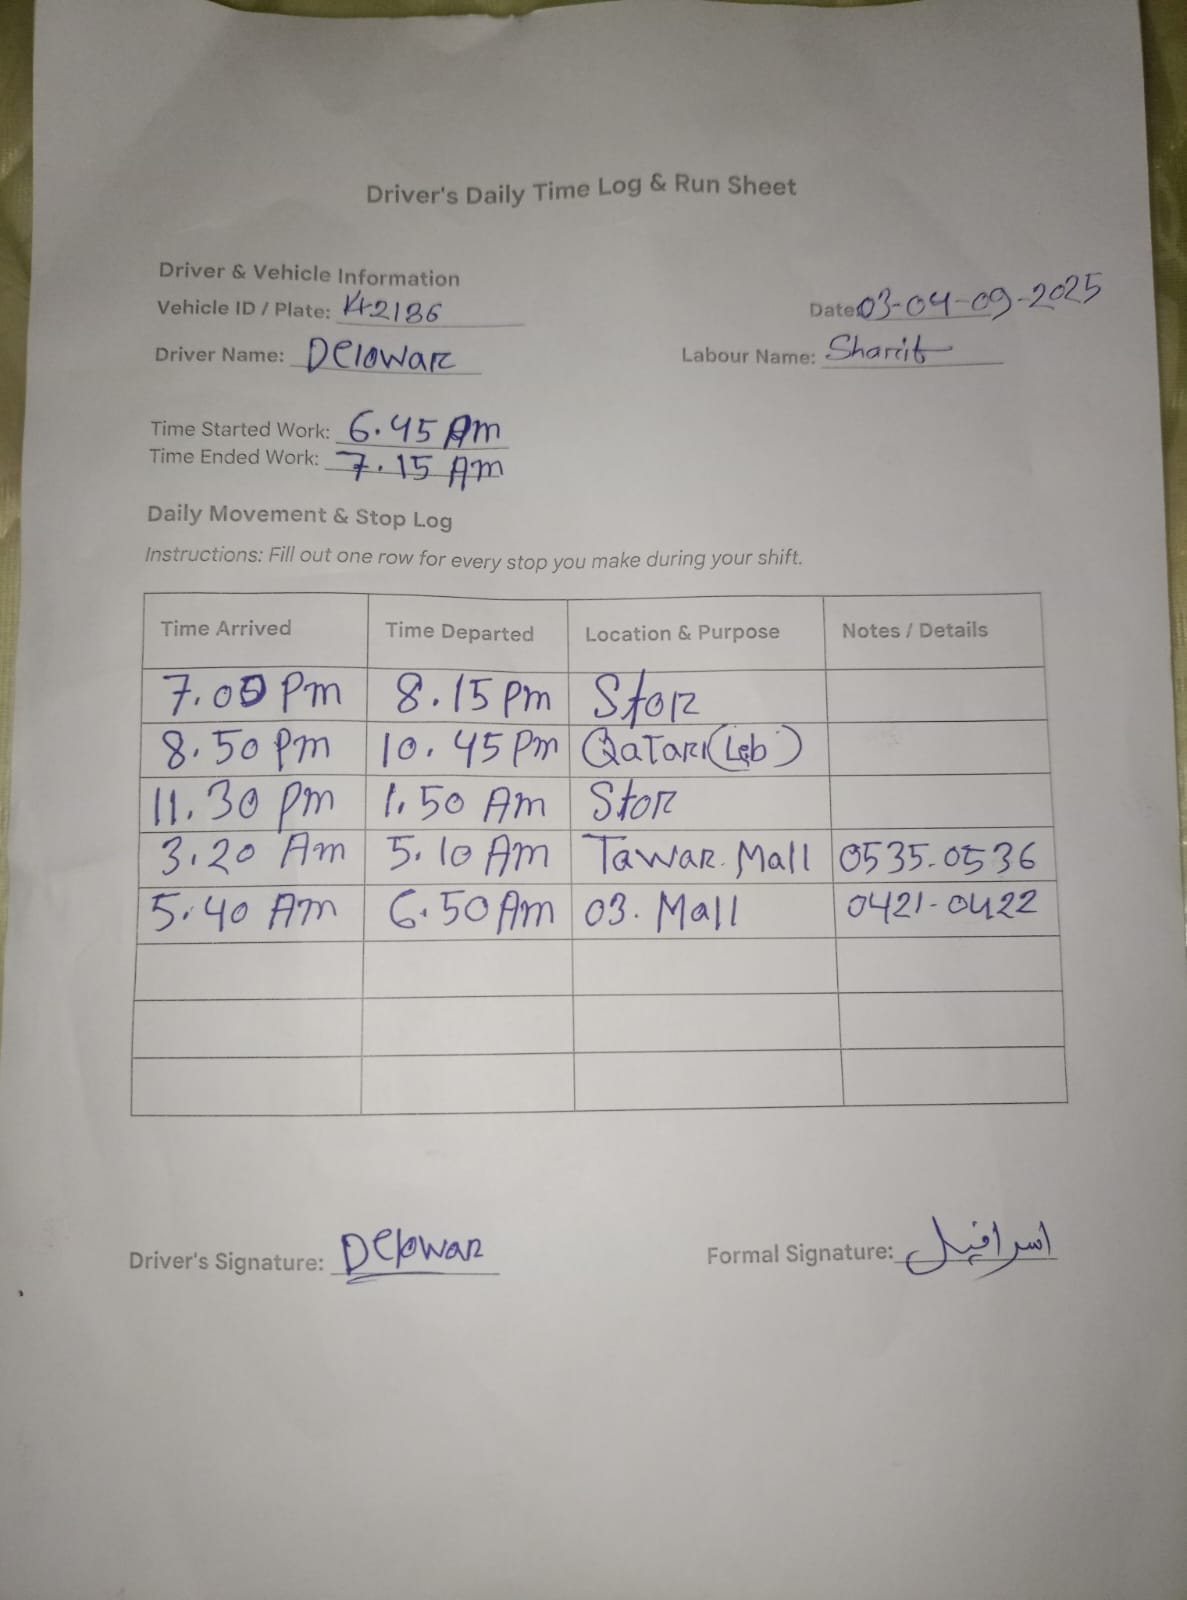 Driver's Daily Time Log & Run Sheet
Driver & Vehicle Information
Vehicle ID / Plate: 142186 Date: 03-04-09-2025
Driver Name: Delowar Labour Name: Sharif
Time Started Work: 6.45 Pm
Time Ended Work: 7.15 Am
Daily Movement & Stop Log
Instructions: Fill out one row for every stop you make during your shift.
Time Arrived Time Departed Location & Purpose Notes / Details
7.00 Pm 8.15 Pm Stor
8.50 Pm 10.45 Pm Qatari (Leb)
11.30 Pm 1.50 Am Stor
3.20 Am 5.10 Am Tawar. Mall 0535-0536
5.40 Am 6.50 Am 03. Mall 0421-0422
Driver's Signature: Delowar Formal Signature: اسرافيل